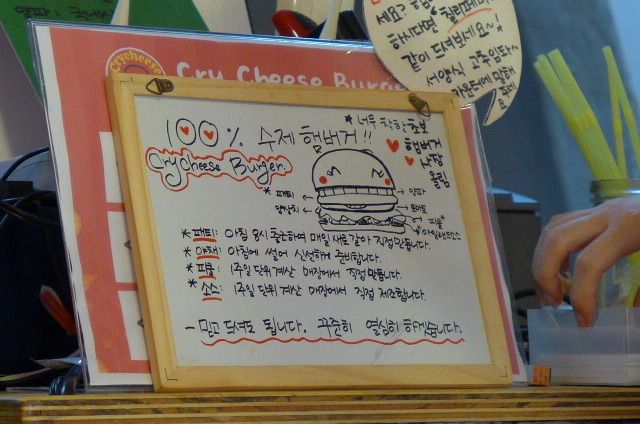 crycheese
Cry Cheese Burger
세요? 험
하시다면 칠리페퍼
같이 드셔보세요~!
서양식 고추입니다
카운터에 말해
주세요
100% 수제 햄버거!!
Cry Cheese Burger
* 너무 착한 초보
햄버거
사장
올림
* 패티
양상치
양파
토마토
피클
* 패티: 아침 8시 출근하여 매일 새로 갈아 직접 만듭니다.
* 야채: 아침에 썰어 신선하게 준비합니다.
* 피클: 1주일 단위 계산 매장에서 직접 만듭니다.
* 소스: 1주일 단위 계산 매장에서 직접 제조합니다.
- 믿고 드셔도 됩니다. 꾸준히 열심히 하겠습니다.